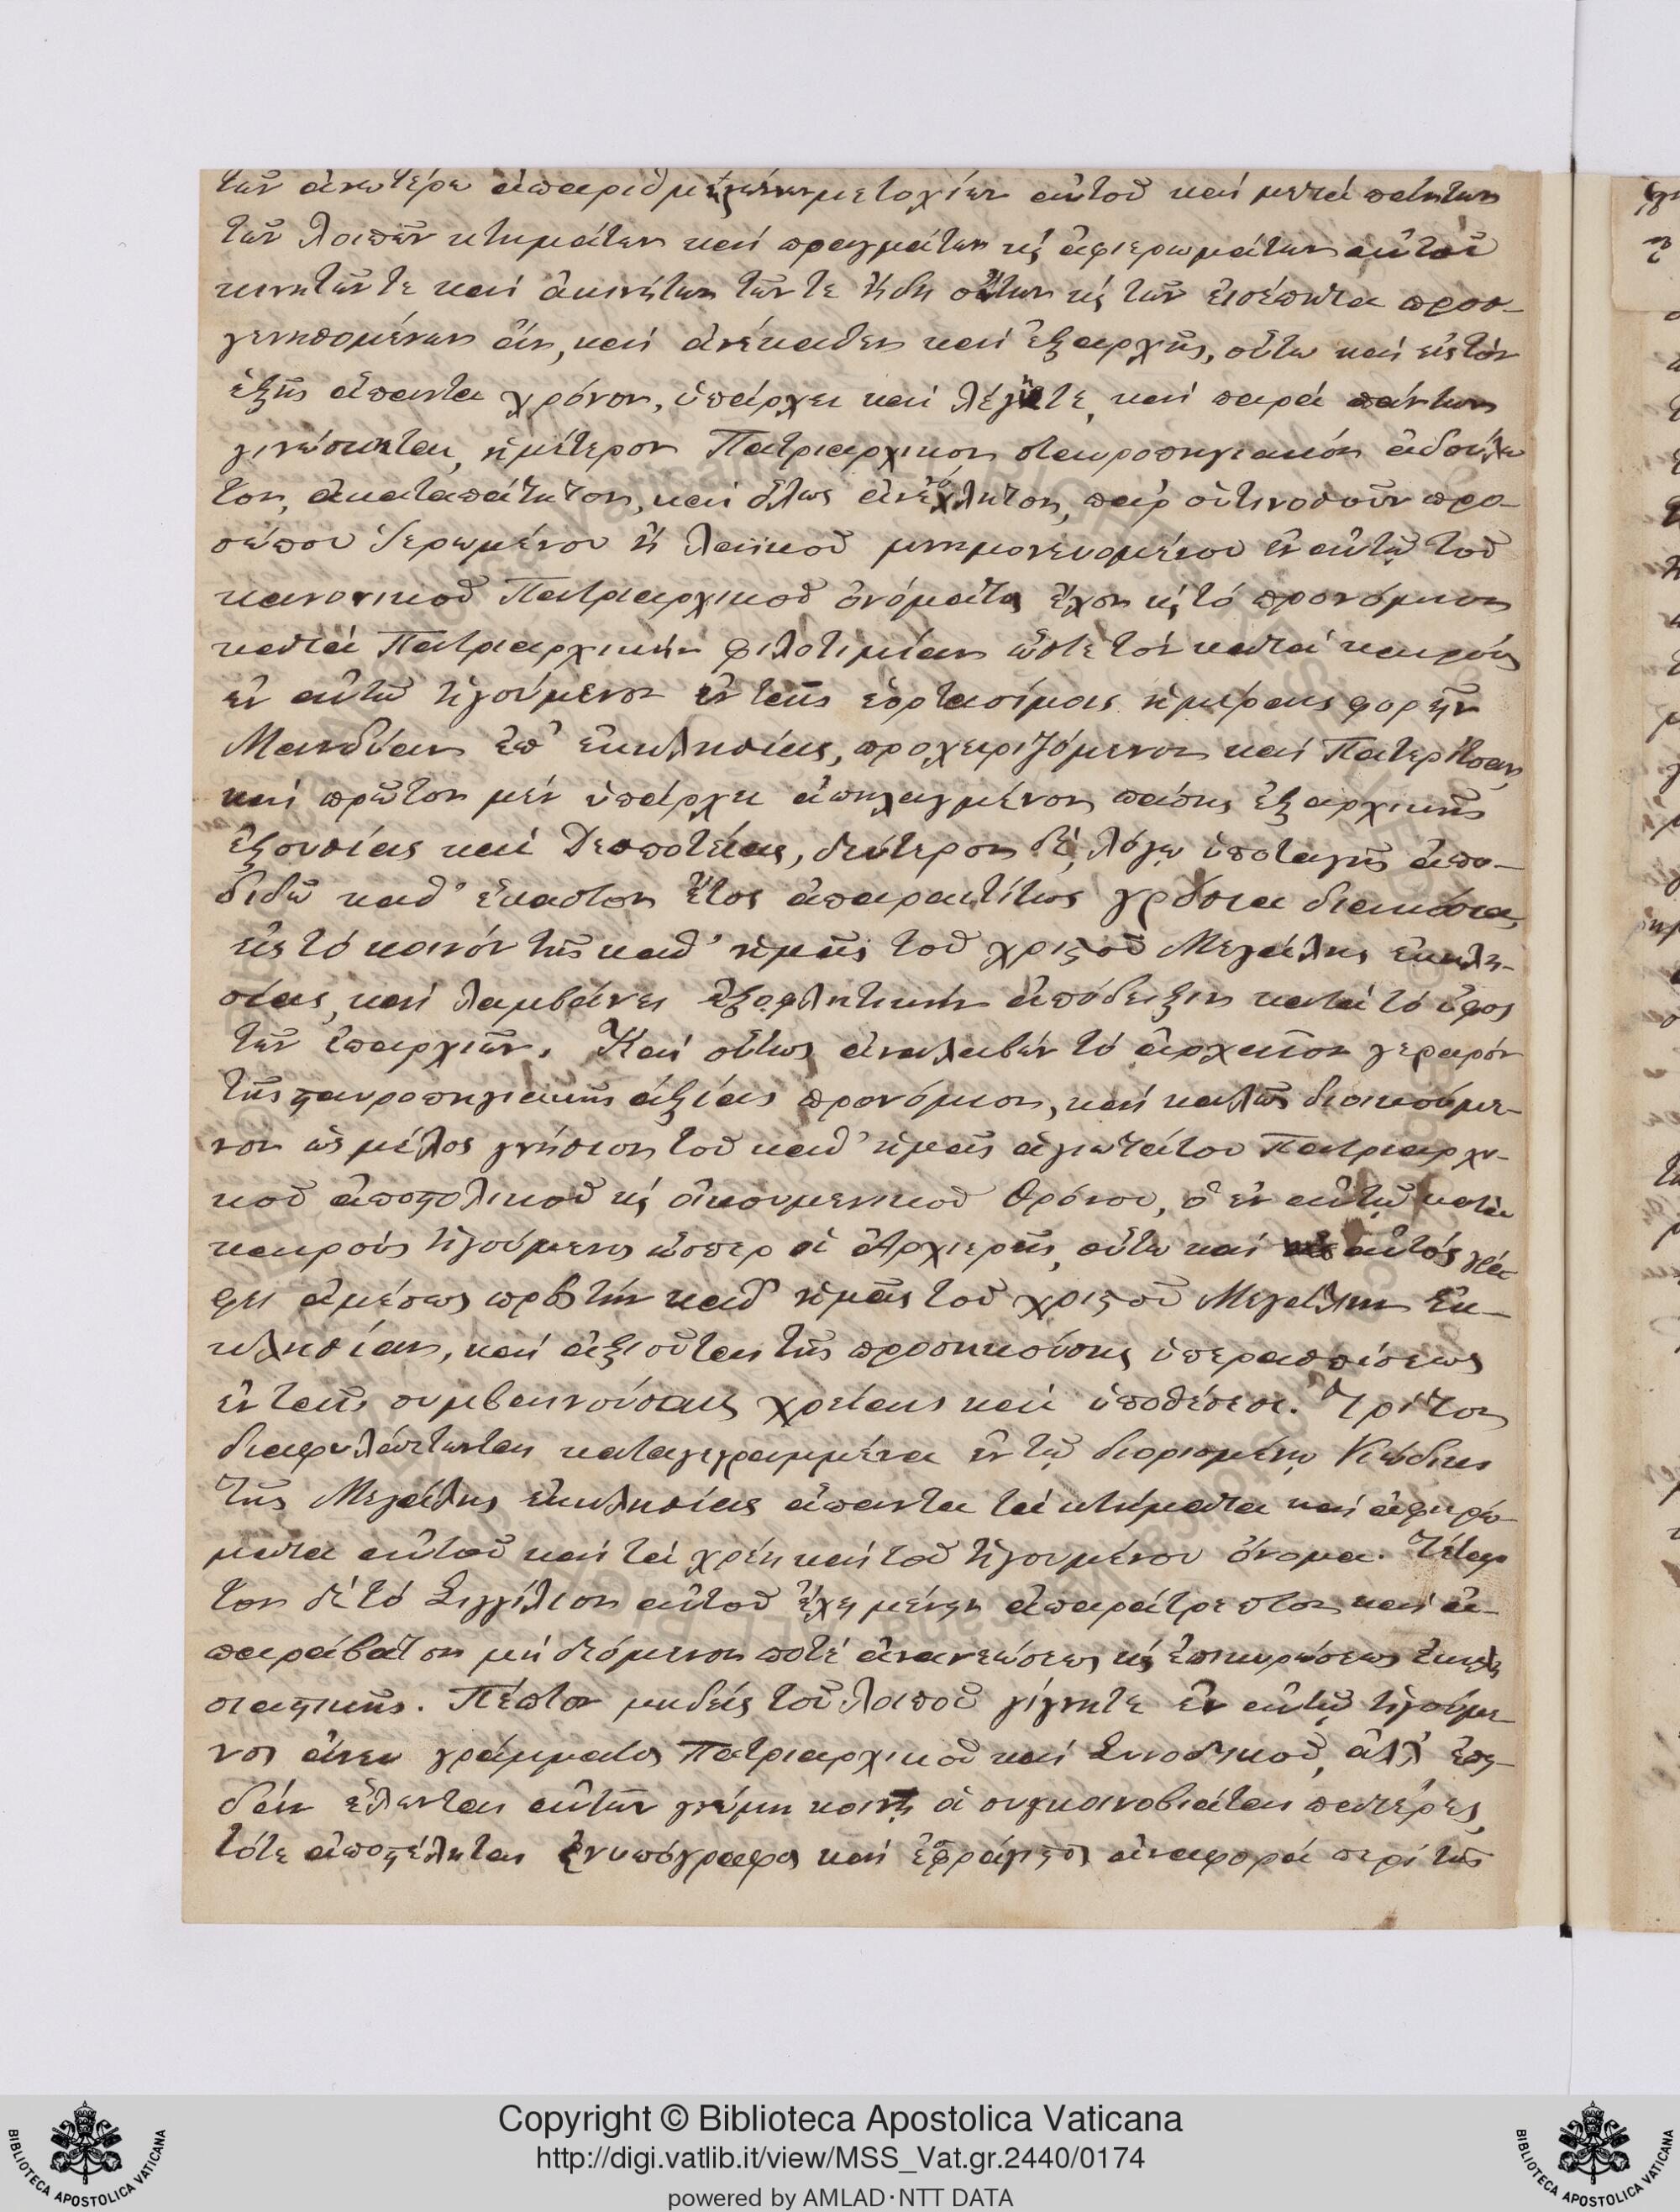 τῶν ἀνωτέρω ἀπαριθμηθέντων μετοχίων αὐτοῦ καί μετά πάντων
τῶν λοιπῶν κτημάτων καί πραγμάτων κ̀ ἀφιερωμάτων αὐτοῦ
κινητῶν τε καί ἀκινήτων τῶν τε ἤδη ὄντων κ̀ τῶν εἰσέπειτα προσ-
γενησομένων ἄν, καί ἀνέκαθεν καί ἐξαρχῆς, οὕτω καί εἰς τόν
ἑξῆς ἅπαντα χρόνον, ὑπάρχει καί λέγητε, καί παρά πάντων
γινώσκηται, ἡμέτερον Πατριαρχικόν σταυροπηγιακόν ἀδούλω
τον, ἀκαταπάτητον, καί ὅλως ἀνενόχλητον, παρ' οὑτινοσοῦν προ-
σώπου ἱερωμένου ἤ λαϊκοῦ μνημονευομένου ἐν αὐτῷ τοῦ
κανονικοῦ Πατριαρχικοῦ ὀνόματος ἔχον κ̀ τό προνόμιον
κατά Πατριαρχικήν φιλοτιμίαν ὥστε τόν κατά καιρούς
ἐν αὐτῷ ἡγούμενον ἐν ταῖς ἑορτασίμοις ἡμέραις φορεῖν
Μανδύαν ἐπ' ἐκκλησίας, προχειριζόμενον καί Πατερίτσαν,
καί πρῶτον μέν ὑπάρχει ἀπηλαγμένον πάσης ἐξαρχικῆς
ἐξουσίας καί Δεσποτείας, δεύτερον δέ, λόγῳ ὑποταγῆς ἀπο-
διδῶ καθ' ἕκαστον ἔτος ἀπαραιτήτως γρόσια διακόσια,
εἰς τό κοινόν τῆς καθ' ἡμᾶς τοῦ χριϛοῦ Μεγάλης ἐκκλη-
σίας, καί λαμβάνει ἐξοφλητικήν ἀπόδειξιν κατά τό ὕφος
τῶν ἐπαρχιῶν. Καί οὕτως ἀναλαβών τό ἀρχαῖον γεραρόν
τῆς ϛαυροπηγιακῆς ἀξίας προνόμιον, καί καλῶς διοικούμε-
νον ὡς μέλος γνήσιον τοῦ καθ' ἡμᾶς ἁγιωτάτου Πατριαρχι-
κοῦ ἀποϛολικοῦ κ̀ οἰκουμενικοῦ θρόνου, ὁ ἐν αὐτῷ κατά
καιρούς ἡγούμενος ὥσπερ οἱ Ἀρχιερεῖς, οὕτω καί αὐτός γρά
φει ἀμέσως πρός τήν καθ' ἡμᾶς τοῦ χριϛοῦ Μεγάλην Ἐκ-
κλησίαν, καί ἀξιοῦται τῆς προσηκούσης ὑπερασπίσεως
ἐν ταῖς συμβαινούσαις χρείαις καί ὑποθέσεσι. Τρίτον
διαφυλάττωνται καταγεγραμμένα ἐν τῷ διορισμένῳ Κώδικι
τῆς Μεγάλης ἐκκλησίας ἅπαντα τά κτήματα καί ἀφιερώ-
ματα αὐτοῦ καί τά χρέη καί τοῦ ἡγουμένου ὄνομα. Τέταρ
τον δέ τό Σιγγίλιον αὐτοῦ ἔχῃ μένειν ἀπαράτρεπτον καί ἀ-
παράβατον μή δεόμενον ποτέ ἀνανεώσεως κ̀ ἐπικυρώσεως ἐκκλη
σιαϛικῆς. Πέπτον μηδείς τοῦ λοιποῦ γίγνητε ἐν αὐτῷ ἡγούμε-
νος ἄνευ γράμματος Πατριαρχικοῦ καί Συνοδικοῦ, ἀλλ' ἐπει-
δάν ἕλωνται αὐτῶν γνώμῃ κοινῇ οἱ συγκοινοβιάται πατέρες,
τότε ἀποϛέληται ἐνυπόγραφος καί ἐσφράγιϛος ἀναφορά περί τῆς